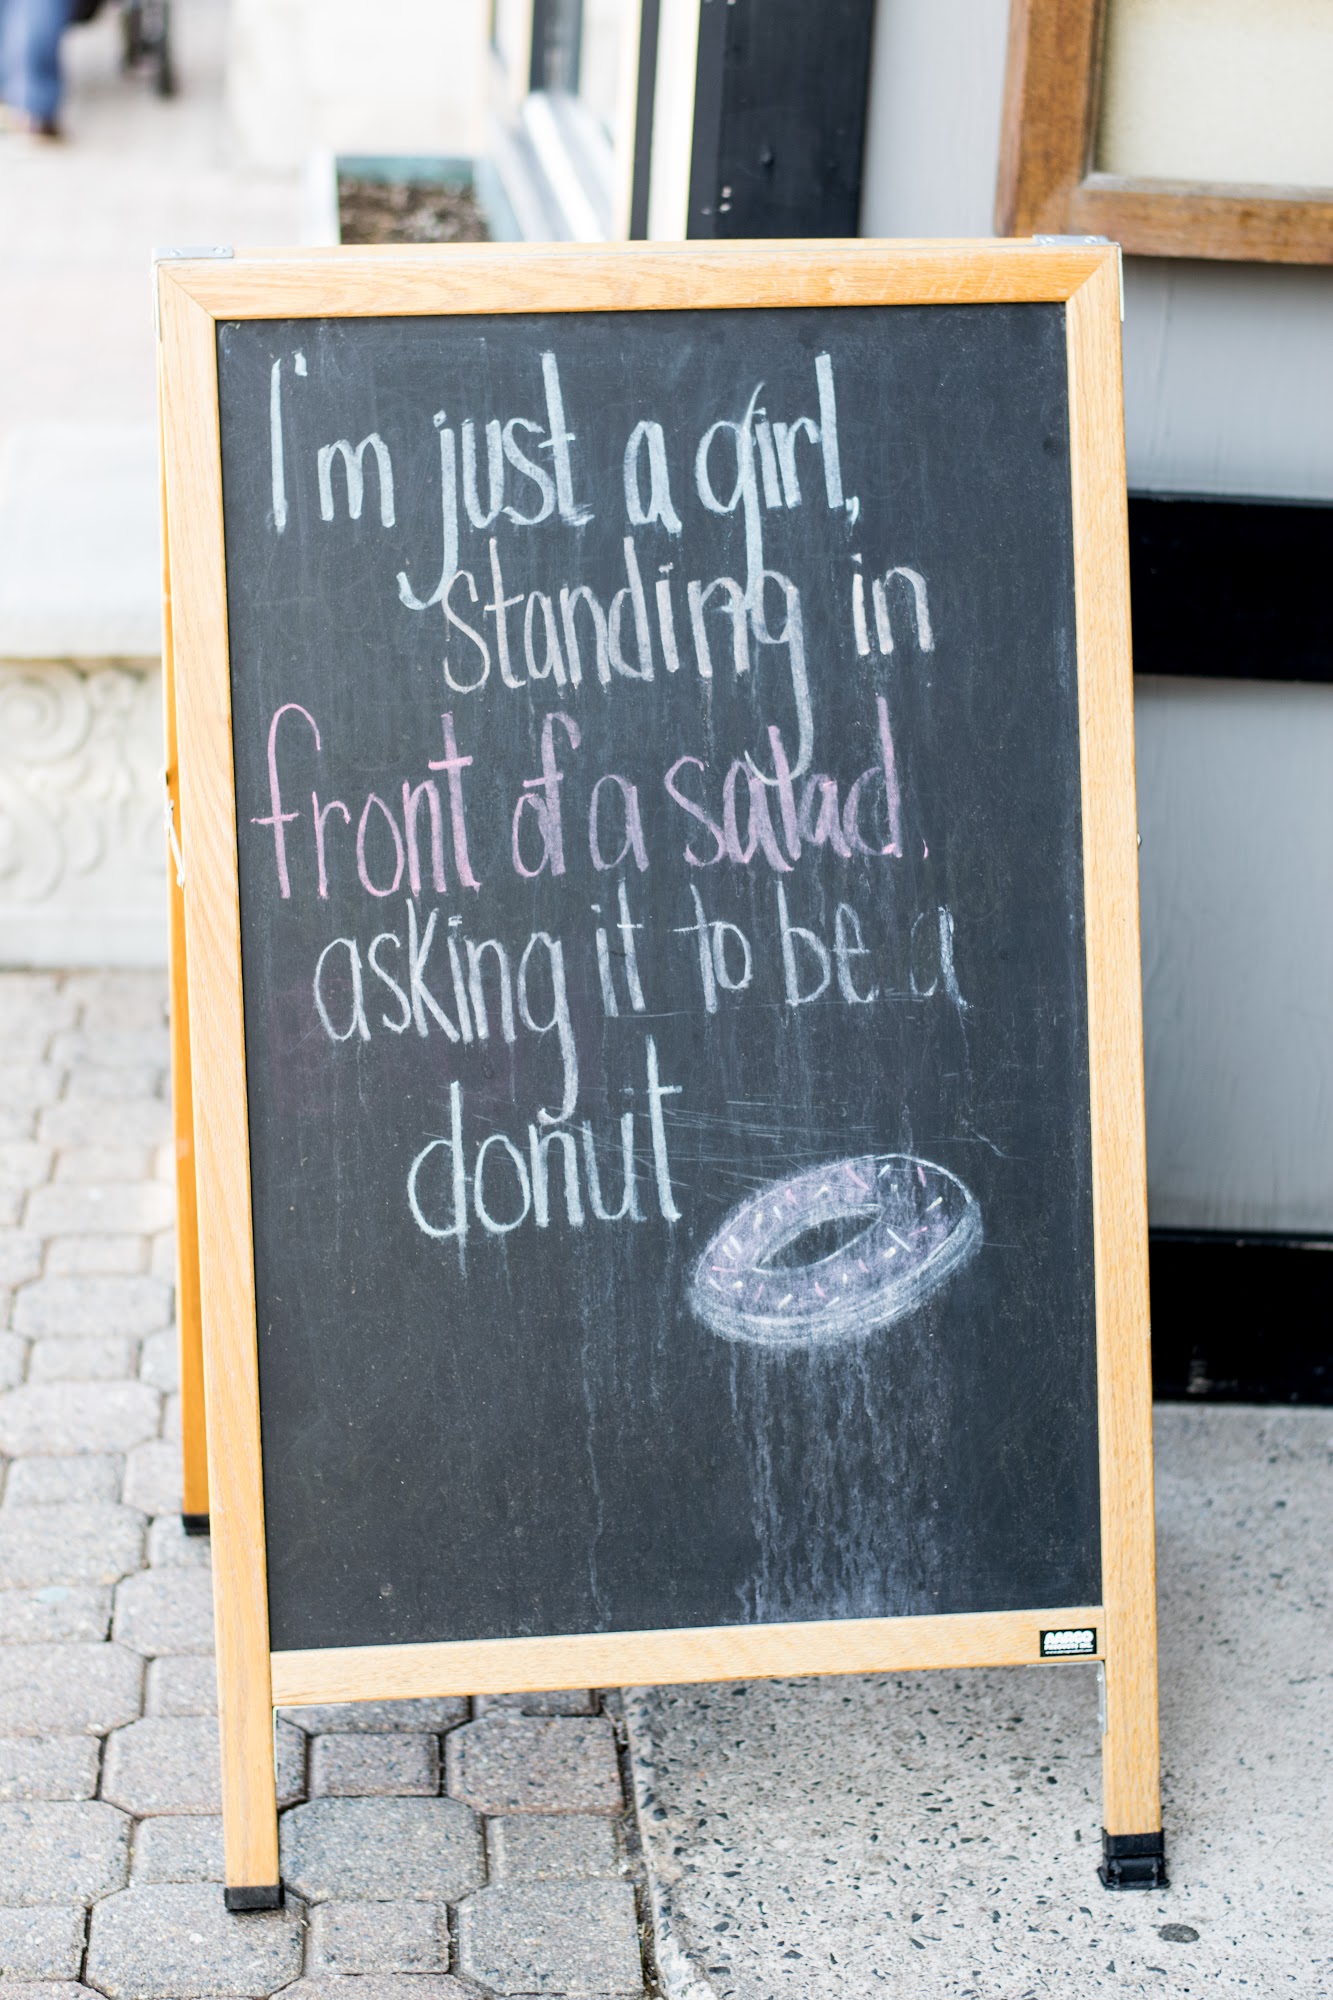 I'm just a girl,
standing in
front of a salad,
asking it to be a
donut
AARCO